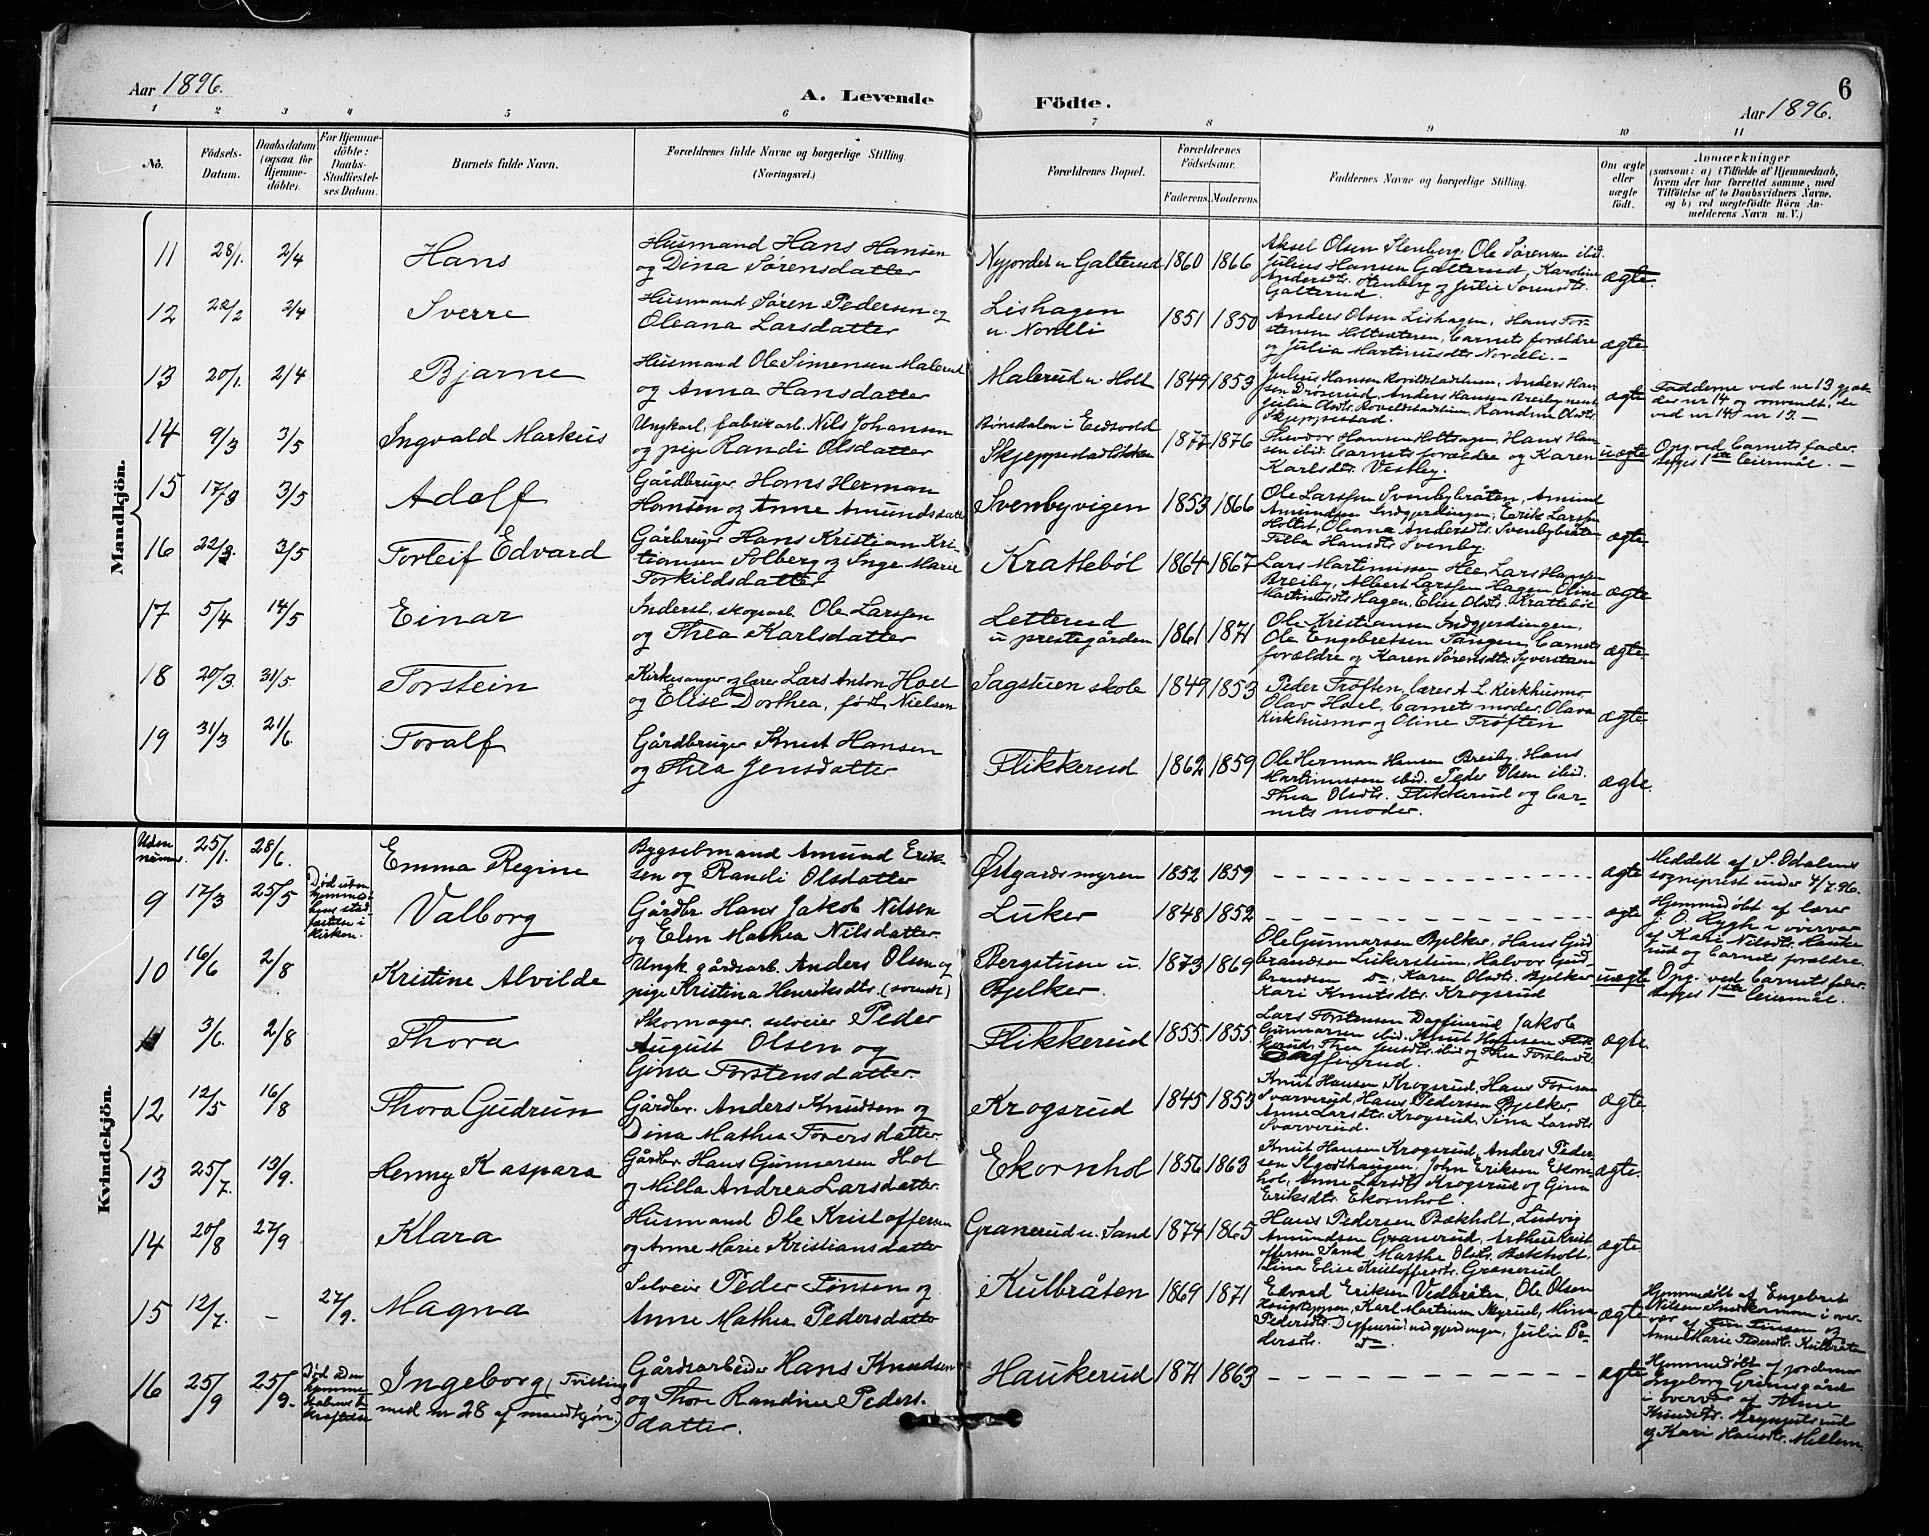 Aar 1896.
A. Levende Födte.
6
Aar 1896.
1 2 3 4 5 6 7 8 9 10 11
No.
Födsels-
Datum.
Daabsdatum
(ogsaa for
Hjemme-
döbte).
For Hjemme-
döbte:
Daabs-
Stadfæstel-
ses Datum.
Barnets fulde Navn.
Forældrenes fulde Navne og borgerlige Stilling.
(Næringsvei.)
Forældrenes Bopæl.
Forældrenes
Födselsaar.
Faderens. Moderens.
Faddernes Navne og borgerlige Stilling.
Om ægte
eller
uægte
födt.
Anmærkninger
(saasom: a) i Tilfælde af Hjemmedaab,
hvem der har forrettet samme, med
Tilföielse af to Daabsvidners Navne.
og b) ved uægtefödte Börn An-
melderens Navn m. V.)
Mandkjön.
11 28/1. 2/4 Hans
Husmand Hans Hansen
og Dina Sørensdatter
Nyjordet u Galterud 1860 1866
Aksel Olsen Stenberg, Ole Sørensen ibid.
Julius Hansen Galterud, Karoline
Andersdtr. Stenberg og Julie Sørensdtr.
Galterud.
ægte.
12 22/2 2/4 Sverre
Husmand Søren Pedersen og
Oleana Larsdatter
Lishagen
u. Nordli
1851 1850
Anders Olsen Lishagen, Hans Tor-
stensen Holtsæteren, barnets forældre
og Julia Martinusdtr Nordli. -
ægte
13 20/1. 2/4 Bjarne
Husmand Ole Simensen Malerud
og Anna Hansdatter
Malerud u Holt 1849 1853
Julius Hansen Rovildstadstuen, Anders Han-
sen Drøserud, Anders Hansen Breiby
Julia Olsdtr. Rovildstadstuen, Randine Olsdtr.
Skjeppestad.
ægte
Fadderne ved nr 13 gjæl-
der nr 14 og omvendt, de
ved nr 14 nr 13. -
14 9/3 3/5 Ingvald Markus
Ungkarl, fabrikarb. Nils Johansen
og pige Randi Olsdatter
Bønsdalen i Eidsvold
Skjeppestadbakken
1877 1876
Theodor Hansen Holthagen, Hans Han-
sen ibid. barnets forældre og Karen
Karlsdtr. Vestby.
uægte
Opg. ved barnets fader.
begges 1ste leiermål. -
15 17/3 3/5 Adolf
Gårdbruger Hans Herman
Hansen og Anne Amundsdatter
Svenbyvigen 1853 1866
Ole Larssen Svenbybråten, Amund
Amundsen Indgjerdingen, Erik Larssen
Holtet, Oleana Andersdtr. Svenbybråten
Hansdtr. Svenby.
ægte
16 22/3 3/5 Torleif Edvard
Gårbruger Hans Kristian Kri-
stiansen Solberg og Inge Marie
Torkildsdatter
Krattebøl 1864 1867
Lars Martinussen Hee, Lars Hansen
Breiby, Albert Larssen Hagen, Oline
Martinusdtr Hagen, Elise Olsdtr. Krattebøl
ægte
17 5/4 14/5 Einar
Inderst, skogsarb. Ole Larssen
og Thea Karlsdatter
Letterud
u prestegården
1861 1871
Ole Kristiansen Indgjerdingen,
Ole Engebretsen Tangen, barnets
forældre og Karen Sørensdtr. Syverstuen
ægte
18 20/3. 31/5 Torstein
Kirkesanger og lærer Lars Anton Hoel
og Elise Dorthea, født Nielsen
Sagstuen skole 1849 1853
Peder Trøften, lærer A L Kirkhusmo,
Olav Hoel, barnets moder, Olava
Kirkhusmo og Oline Trøften
ægte
19 31/3 21/6. Toralf
Gårdbruger Knut Hansen
og Thea Jensdatter
Flikkerud 1862 1859
Ole Herman Hansen Breiby, Hans
Martinussen ibid. Peder Olsen ibid.
Thea Olsdtr. Flikkerud og bar-
nets moder.
ægte.
Kvindekjön.
Uden
nummer. 25/1. 28/6. Emma Regine
Bygselmand Amund Erik-
sen og Randi Olsdatter
Østgardsmyren 1852 1859
ægte
Meddelt af S. Odalens
sogneprest under 4/7 96.
9 17/3 25/5
Død uden
hjemmedå-
bens stad-
fæstelse i
kirken.
Valborg
Gårdbr Hans Jakob Nilsen
og Elen Mathea Nilsdatter.
Luker 1848 1852
ægte
Hjemmedøbt af lærer
J. O. Rygh i overvær
af Kari Nilsdtr. Hauke-
rud og barnets forældre.
10 16/6 2/8 Kristine Alvilde
Ungk. gårdsarb. Anders Olsen og
pige Kristina Henriksdtr. (svensk)
Bergstuen u.
Bjelker.
1873 1869
Ole Gunnarsen Bjelker, Hans Gud-
brandsen Lukerstuen, Halvor Gud-
brandsen do. Karen Olsdtr. Bjelker
Kari Knutsdtr. Krogsrud
uægte
Opg. ved barnets fader.
begges 1ste leiermål.
11 3/6. 2/8 Thora
Skomager, selveier Peder
August Olsen og
Gina Torstensdatter.
Flikkerud 1855. 1855.
Lars Torstensen Dagfinrud, Jakob
Gunnarsen ibid. Knut Hansen Flik-
kerud, Thea Jensdtr ibid og Thea Torstensdtr
Dagfinrud.
ægte.
12 12/5 16/8 Thora Gudrun
Gårdbr. Anders Knudsen og
Dina Mathea Toversdatter
Krogsrud 1845 1853
Knut Hansen Krogsrud, Hans Toresen
Svarverud, Hans Pedersen Bjelker,
Anne Larsdtr. Krogsrud, Sina Larsdtr.
Svarverud.
ægte
13 25/7. 13/9. Henny Kaspara
Gårdbr Hans Gunnarsen Hol
og Milla Andrea Larsdatter.
Ekornhol 1856 1863
Knut Hansen Krogsrud, Anders Peder-
sen, John Eriksen Ekorn-
hol, Anne Larsdtr Krogsrud og Gina
Eriksdtr. Ekornhol.
ægte.
14 20/8 27/9 Klara
Husmand Ole Kristoffersen
og Anne Marie Kristiansdatter
Granerud u. Sand 1874 1865
Hans Pedersen Bækholt, Ludvig
Amundsen Granerud, Arthur Krist-
offersen Sand, Marthe Olsdtr. Bækholt.
Lina Elise Kristoffersdtr. Granerud.
ægte.
15 12/7. - 27/9. Magna
Selveier Peder Finsen og
Anne Mathea Pedersdatter
Kulbråten 1869 1871
Edvard Eriksen Vedbråten, Ole Olsen
Haugtoppen, Karl Martinsen Myrud, Mina
Pedersdtr Indgjerdingen, Julie Pe-
dersdtr. do.
ægte
Hjemmedøbt af Engebret
Nilsen i over-
vær af Finsen og
Anne Marie Pedersdtr. Kulbråten
16 25/9 25/9.
Død uden
hjemme-
dåbens be-
kræftelse
Ingeborg (Tvilling
med nr 28 af mandkjøn.)
Gårdsarbeider Hans Knudsen
og Thore Randine Peders-
datter.
Haukerud 1871 1863
ægte
Hjemmedøbt af jordemor
Ingeborg Grinisgård
i overvær af Anne
Knudsdtr. Brynjulsrud
og Kari Hansdtr. Mellem